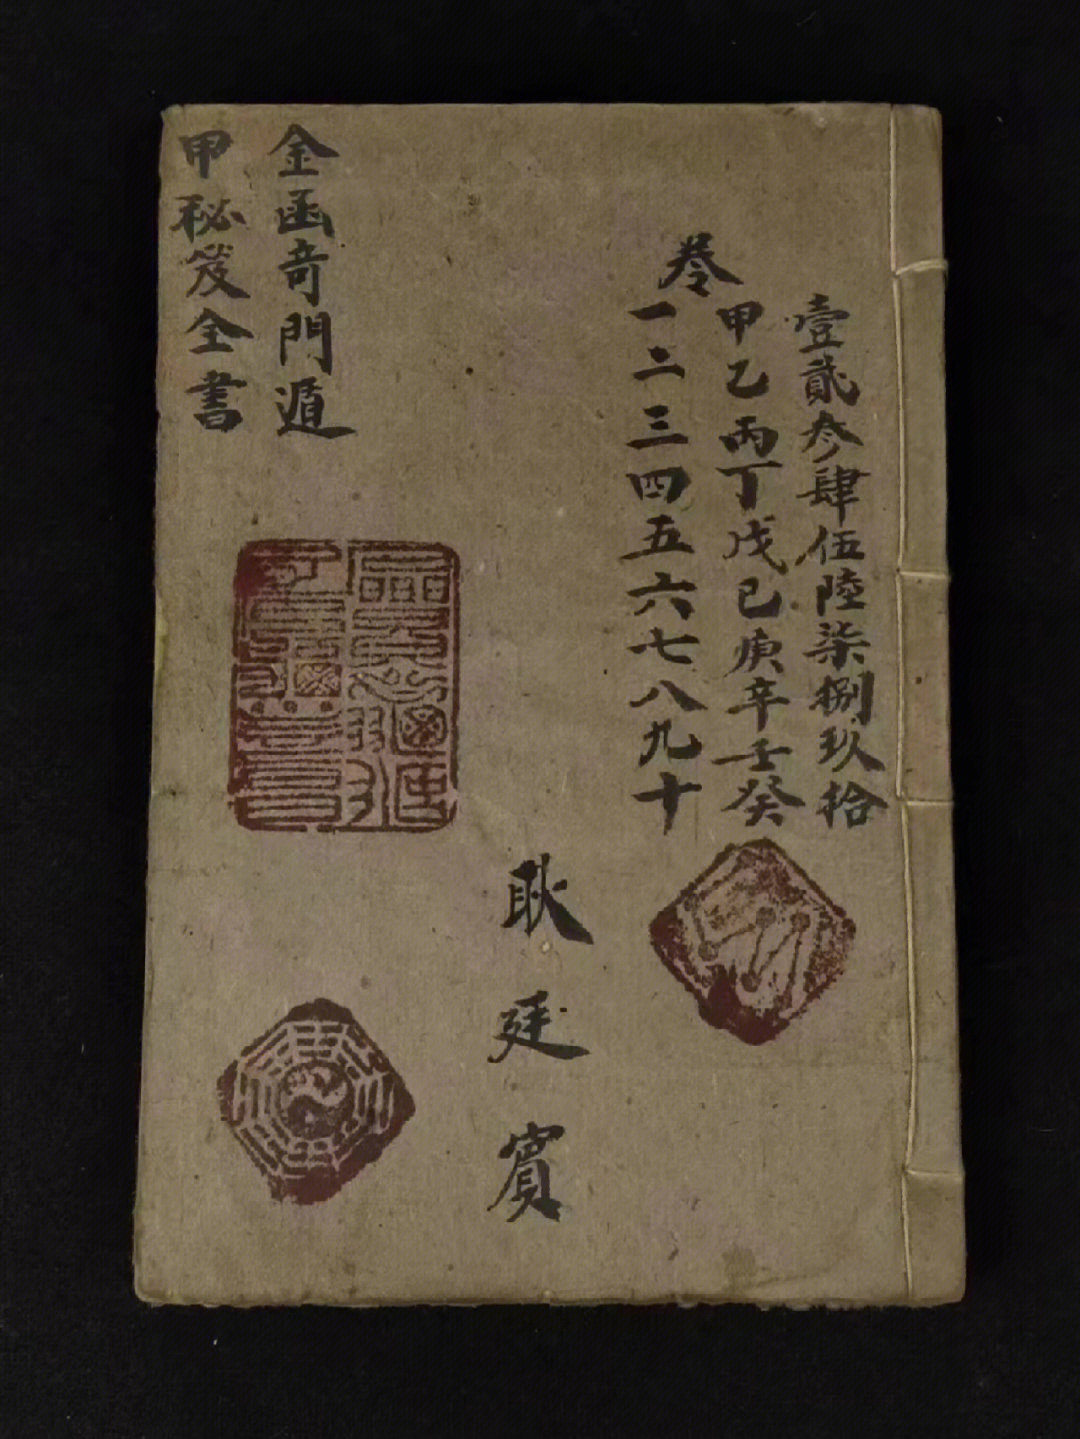 壹貳叄肆伍陸柒捌玖拾
卷
甲乙丙丁戊己庚辛壬癸
一二三四五六七八九十
耿廷賓
金函奇門遁
甲秘笈全書